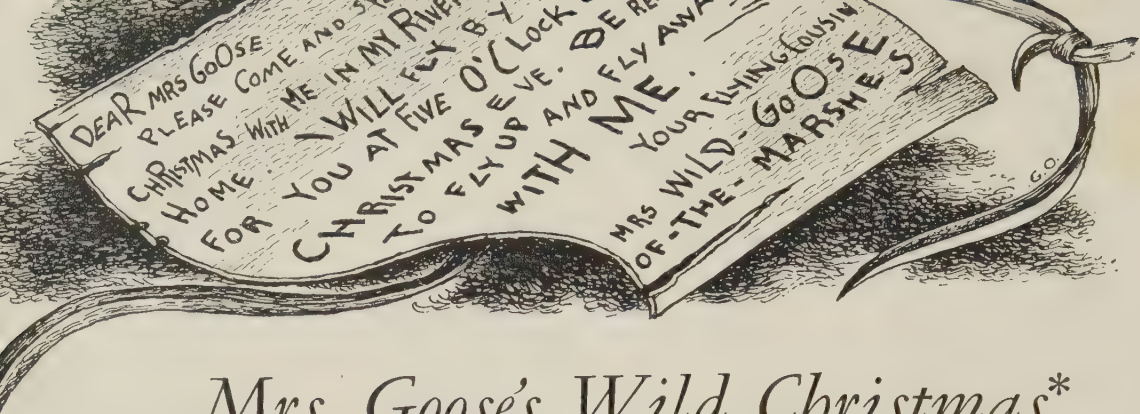 DEAR MRS GOOSE
PLEASE COME AND
CHRISTMAS WITH ME IN MY RIVER
HOME. I WILL FLY BY
FOR YOU AT FIVE O'CLOCK
CHRISTMAS EVE. BE
TO FLY UP AND FLY AWAY
WITH ME.
YOUR FLYING COUSIN
MRS WILD-GOOSE
OF-THE-MARSHES
G.O.
Mrs. Goose's Wild Christmas*